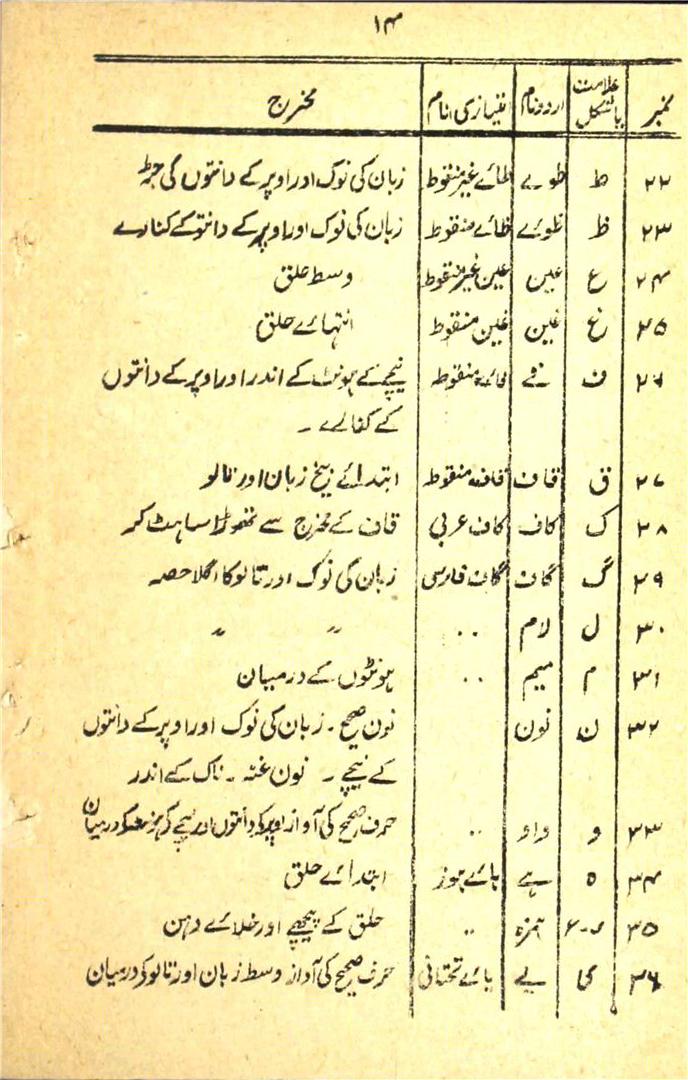 ۱۴
نمبر علامت باشکل اردو نام امتیازی نام مخرج
۲۲ ط طوے طائے غیر منقوط زبان کی نوک اور اوپر کے دانتوں کی جڑ
۲۳ ظ ظوئے ظائے منقوط زبان کی نوک اور اوپر کے دانتو کے کنارے
۲۴ ع عین عین غیر منقوط وسط حلق
۲۵ غ غین غین منقوط انتہائے حلق
۲۶ ف فے فائے منقوطہ نیچے کے ہونٹ کے اندر اور اوپر کے دانتوں
کے کنارے ۔
۲۷ ق قاف قاف منقوطہ ابتدائے بیخ زبان اور تالو
۲۸ ک کاف کاف عربی قاف کے مخرج سے تھوڑا سا ہٹ کر
۲۹ گ گاف گاف فارسی زبان کی نوک اور تالو کا اگلا حصہ
۳۰ ل لام ․․ ״ ״
۳۱ م میم ․․ ہونٹوں کے درمیان
۳۲ ن نون نون صحیح ۔ زبان کی نوک اور اوپر کے دانتوں
کے نیچے ۔ نون غنہ ۔ ناک کے اندر
۳۳ و واو ․․ حرف صحیح کی آواز اوپر کے دانتوں اور نیچے کے ہونٹ کے درمیان
۳۴ ہ ہے ہائے ہوز ابتدائے حلق
۳۵ ء ہمزہ ․․ حلق کے پیچھے اور خلائے دہن
۳۶ ی یے یائے تحتانی حرف صحیح کی آواز وسط زبان اور تالو کے درمیان